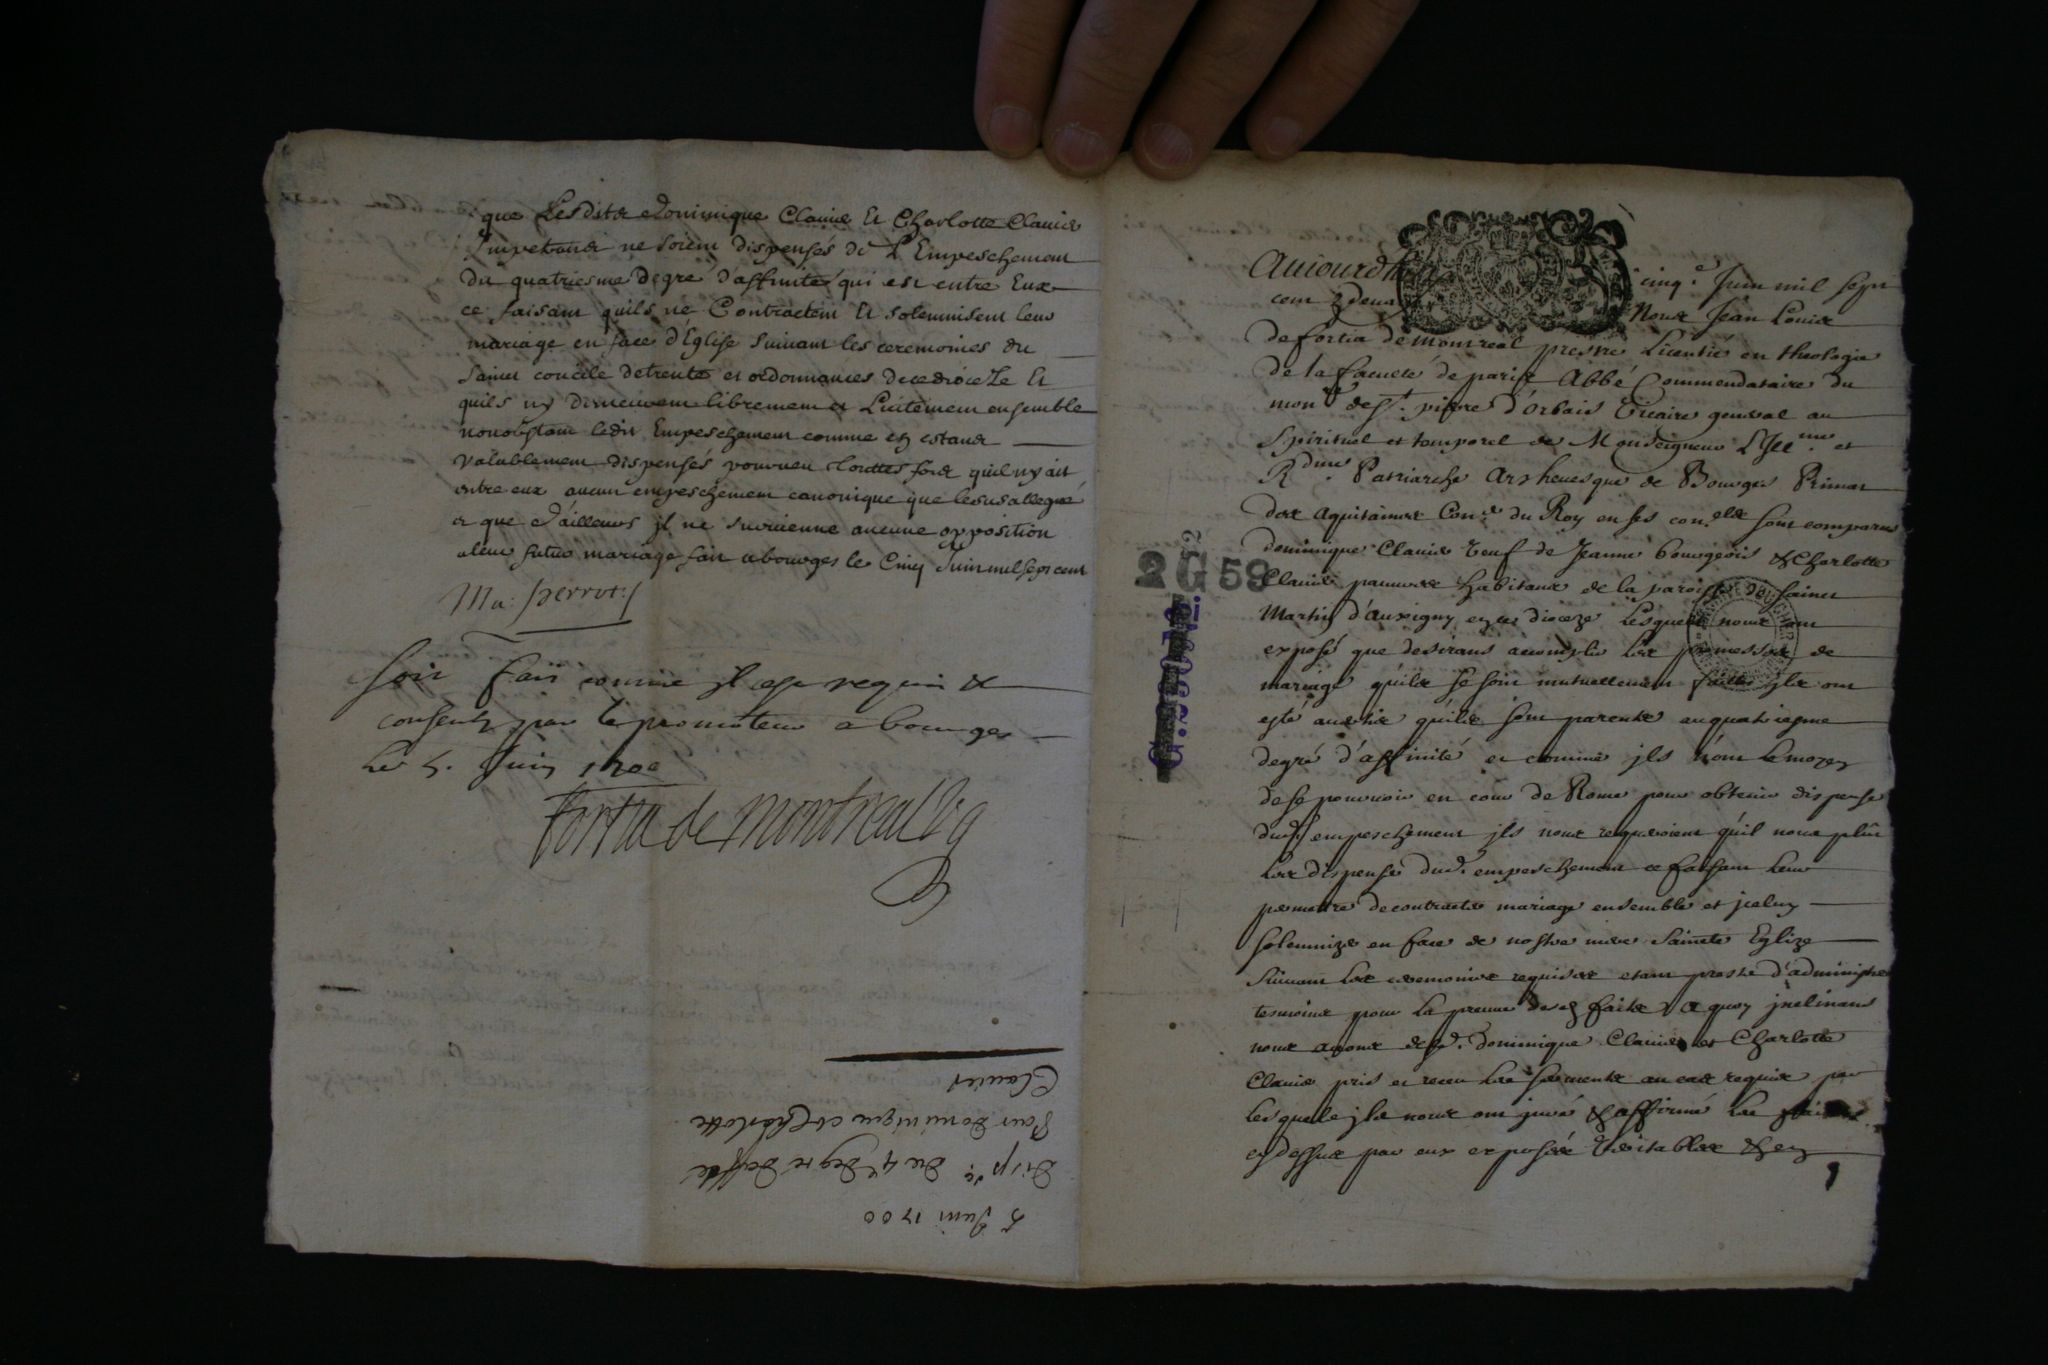 que Lesdits Dominique Clavier Et Charlotte Clavier
Impetrans ne soient dispensés de L'Empeschement
du quatriesme degré d'affinité qui est entre Eux
ce faisant quils ne Contractent Et solemnisent leur
mariage en face d'Eglise suivant les ceremonies du
saint concile detrente et ordonnances de ce dioceze Et
quils ny demeurent librement et Licitement ensemble
nonobstant ledit Empeschement comme en estant
valablement dispensés pourveu touttes fois quil ny ait
entre eux aucun empeschement canonique que le susallegué
et que d'ailleurs il ne survienne aucune opposition
a leur futur mariage fait a bourges le Cinq Juin mil sept cent
Ma: perrot
Soit fait comme il est requis &
consenty par le promoteur a bourges
Le 5. Juin 1700
Fortia de Montreal Vg
5 Juin 1700
Disp.ce du 4e degré
Pour dominique et Charlotte
Clavier
Aujourd'huy cinq.e Juin mil sept
cent Nous Jean Louis
de fortia de montreal prestre Licentié en theologie
de la faculté de paris Abbé Commendataire du
mon.re de St. pierre d'orbais Vicaire general au
spirituel et temporel de Monseigneur L'Ill.me et
R.dme Patriarche Archevesque de Bourges Primat
des aquitaines Con.er du Roy en ses con.els sont comparus
dominique Clavier veuf de Jeanne bourgeois & Charlotte
Clavier pauvres habitans de la paroisse de saint
Martin d'auxigny en ce dioceze Lesquels nous ont
exposé que desirans accomplir Les promesses de
mariage qu'ils se sont mutuellement faittes ils ont
esté avertis qu'ils sont parents au quatriesme
degré d'affinité et comme ils n'ont le moyen
de se pourvoir en cour de Rome pour obtenir dispense
dud. empeschement ils nous requeroient qu'il nous plût
Les dispenser dud. empeschement ce faisant leur
permettre de contracter mariage ensemble et iceluy
solemnizer en face de nostre mere Sainte Eglize
suivant les ceremonies requises etant prests d'administrer
tesmoins pour la preuve desd. faits A quoy inclinans
nous avons desd. dominique Clavier et Charlotte
Clavier pris et receu les serments au cas requis par
lesquels ils nous ont juré & affirmé les faits
cy dessus par eux exposés veritables & en
2 G 59
2